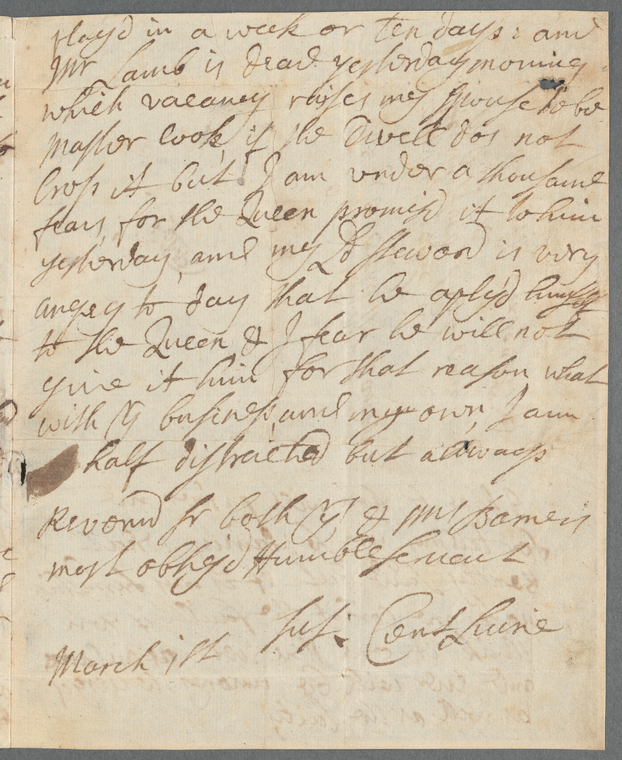 play'd in a week or ten days: and
Mr Lamb is dead yesterday morning
which vacancy raises my spouse to be
Master Cook, if the Divell dos not
Cross it but I am under a thousand
fears for the Queen promis'd it to him
yesterday, and my Ld steward is very
angery to day that he aply'd himself
to the Queen & I fear he will not
give it him for that reason what
with Yr business and my own, I am
half distracted but allways
Reverend Sr both Yr & Mrs Barnes's
most oblig'd Humble servant
Sus. CentLivrie
March 1st